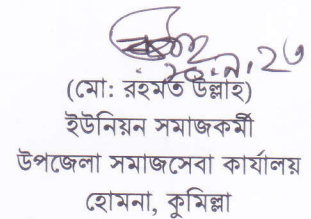 (মো: রহমত উল্লাহ)
ইউনিয়ন সমাজকর্মী
উপজেলা সমাজসেবা কার্যালয়
হোমনা, কুমিল্লা